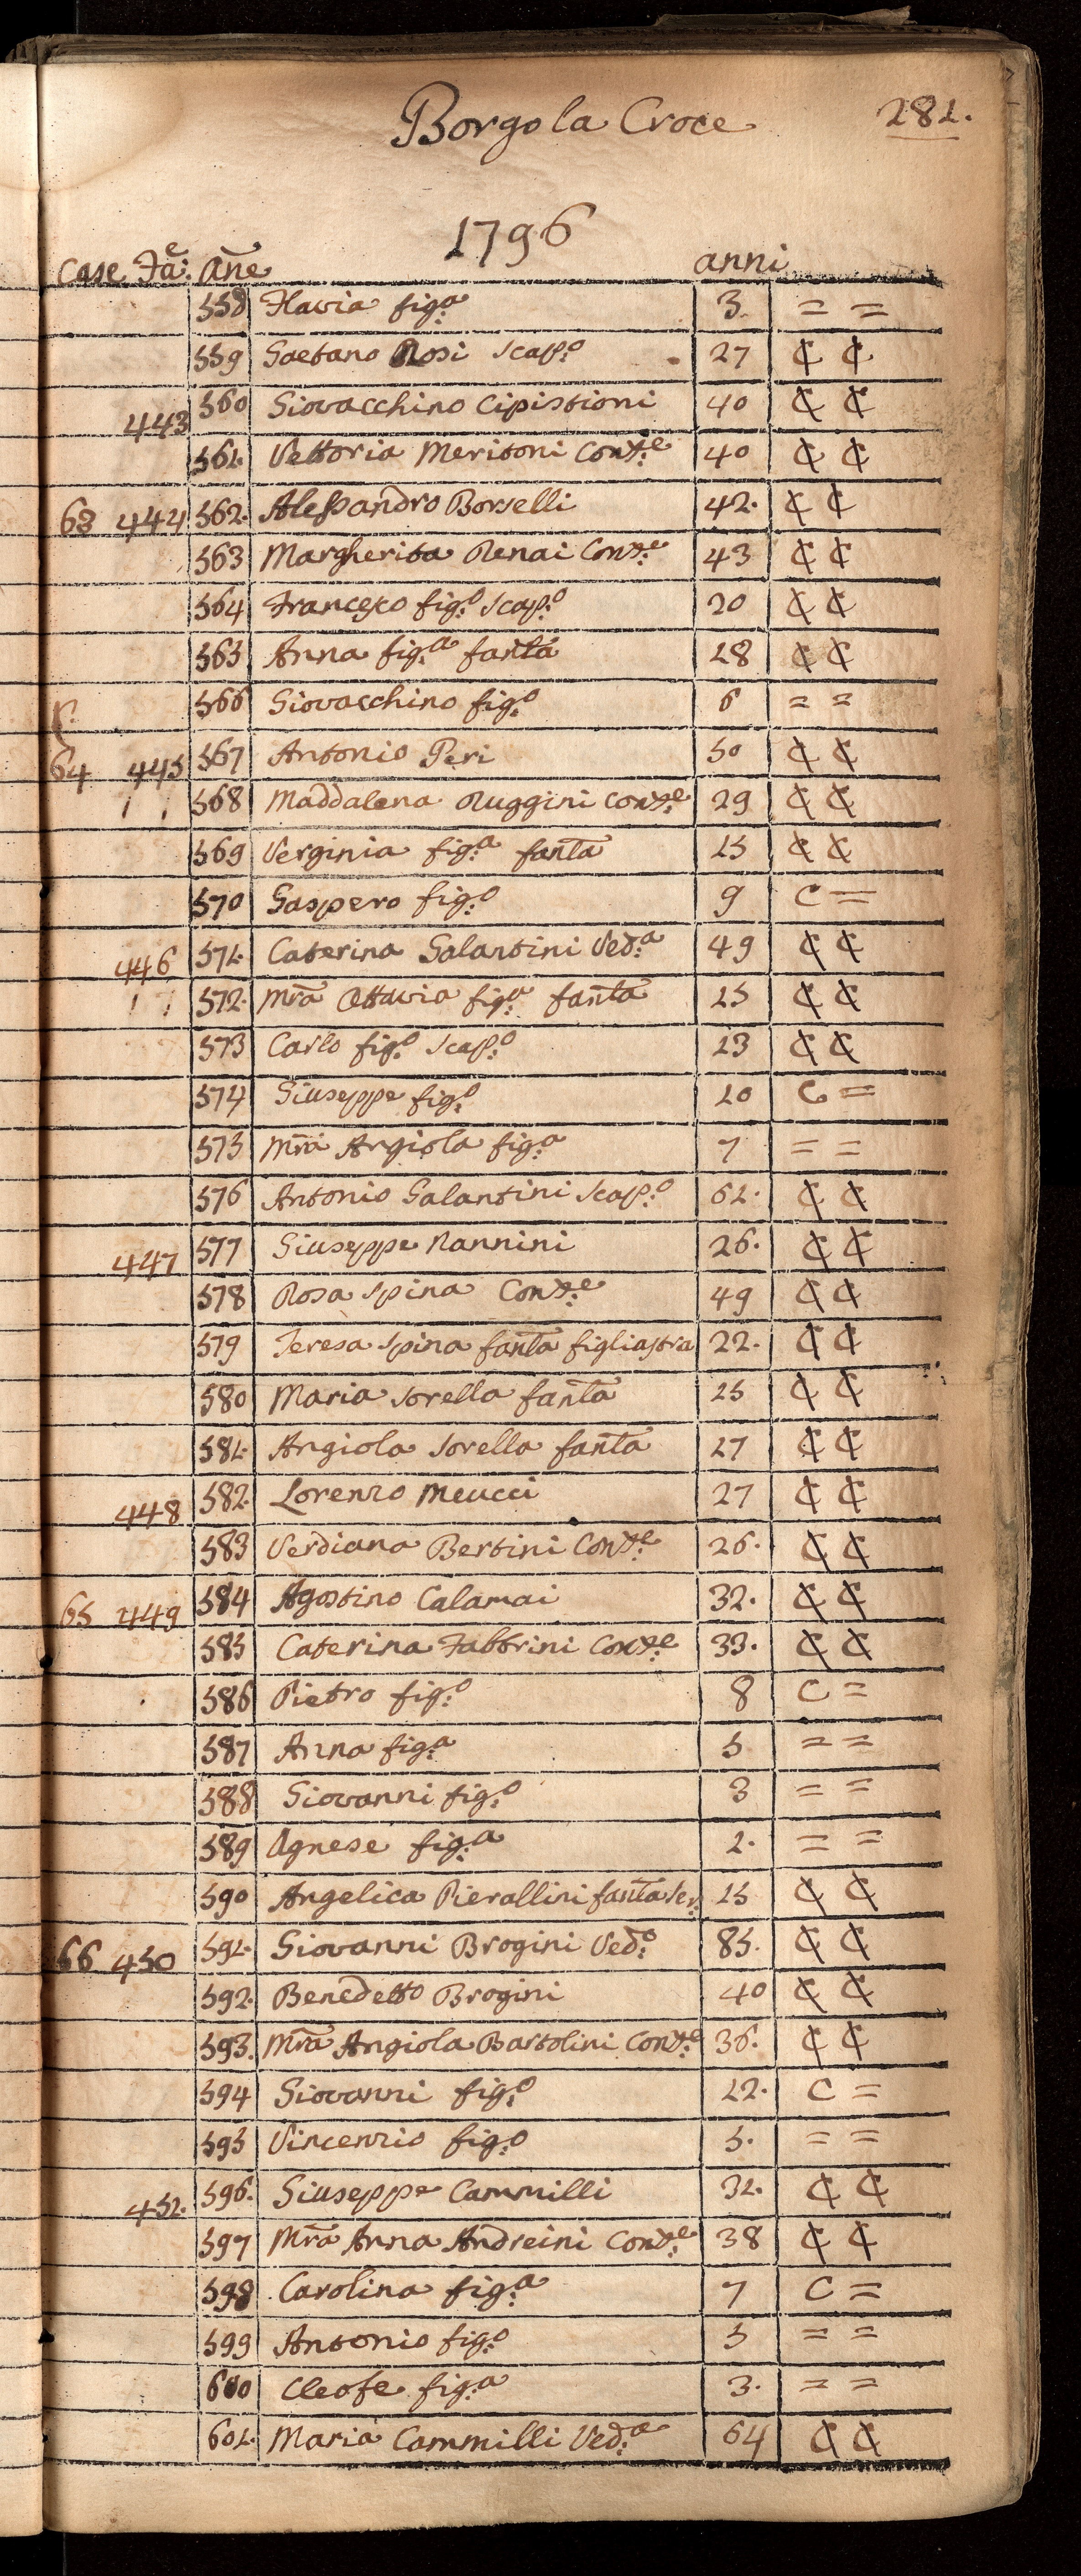 Borgo la Croce 281.
1796
Case Fa:e Añe anni
558 Flavia fig:a 3. = =
559 Gaetano Rosi Scap:o 27 ₵ ₵
443 560 Giovacchino Cipistioni 40 ₵ ₵
561. Vettoria Meritoni Con:te 40 ₵ ₵
63 444 562. Alessandro Borselli 42. ₵ ₵
563 Margherita Renai Con:te 43 ₵ ₵
564 Francesco fig:o Scap:o 20 ₵ ₵
565 Anna fig:a fañta 18 ₵ ₵
566 Giovacchino fig:o 6 = =
64 445 567 Antonio Peri 50 ₵ ₵
568 Maddalena Ruggini Con:te 29 ₵ ₵
569 Verginia fig:a fañta 15 ₵ ₵
570 Gaspero fig:o 9 C =
446 571. Caterina Galantini Ved:a 49 ₵ ₵
572. Mr̃a Ottavia fig:a fañta 15 ₵ ₵
573 Carlo fig:o Scap:o 13 ₵ ₵
574 Giuseppe fig:o 10 C =
575 Mr̃a Angiola fig:a 7 = =
576 Antonio Galantini Scap:o 61. ₵ ₵
447 577 Giuseppe Nannini 26. ₵ ₵
578 Rosa Spina Con:te 49 ₵ ₵
579 Teresa Spina fañta figliastra 22. ₵ ₵
580 Maria Sorella fañta 15 ₵ ₵
581. Angiola Sorella fañta 17 ₵ ₵
448 582. Lorenzo Meucci 27 ₵ ₵
583 Verdiana Bertini Con:te 26. ₵ ₵
65 449 584 Agostino Calamai 32. ₵ ₵
585 Caterina Fabbrini Con:te 33. ₵ ₵
586 Pietro fig:o 8 C =
587 Anna fig:a 5 = =
588 Giovanni fig:o 3 = =
589 Agnese fig:a 1. = =
590 Angelica Pierallini fañta Ser. 15 ₵ ₵
66 450 591. Giovanni Brogini Ved:o 85. ₵ ₵
592. Benedetto Brogini 40 ₵ ₵
593. Mr̃a Angiola Bartolini Con:te 36. ₵ ₵
594 Giovanni fig:o 12. C =
595 Vincenzio fig:o 5. = =
451. 596. Giuseppe Cammilli 32. ₵ ₵
597 Mr̃a Anna Andreini Con:te 38 ₵ ₵
598 Carolina fig:a 7 C =
599 Antonio fig:o 5 = =
600 Cleofe fig:a 3. = =
601. Maria Cammilli Ved:a 64 ₵ ₵